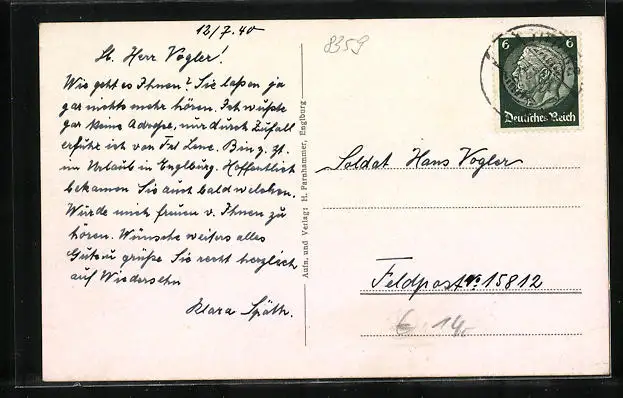 12/7.40
St. Herr Vogler!
Wie geht es Ihnen? Sie laßen ja
gar nichts mehr hören. Ich wußte
gar keine Adresse, nur durch Zufall
erfuhr ich von Frl Lene. Bin z. Zt.
im Urlaub in Englburg. Hoffentlich
bekamen Sie auch bald welchen.
Würde mich freuen v. Ihnen zu
hören. Wünsche weiters alles
Gute u. grüße Sie recht herzlich
auf Wiedersehn
Klara Späth.
8359
Aufn. und Verlag: H. Farnhammer, Englburg
6 6
Deutsches Reich
Soldat Hans Vogler
Feldpost № 15812
€ 14,-